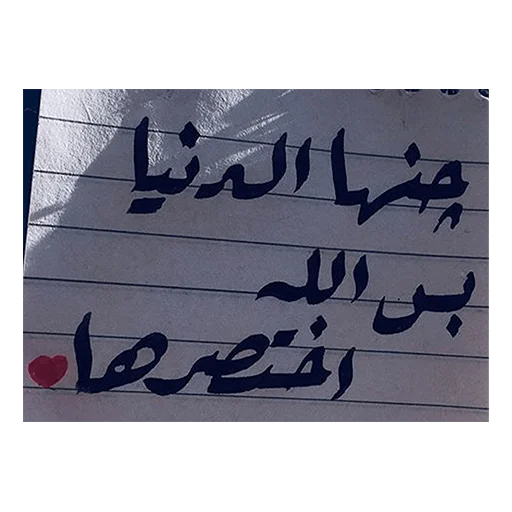 چنها الدنيا
بس الله
اختصرها